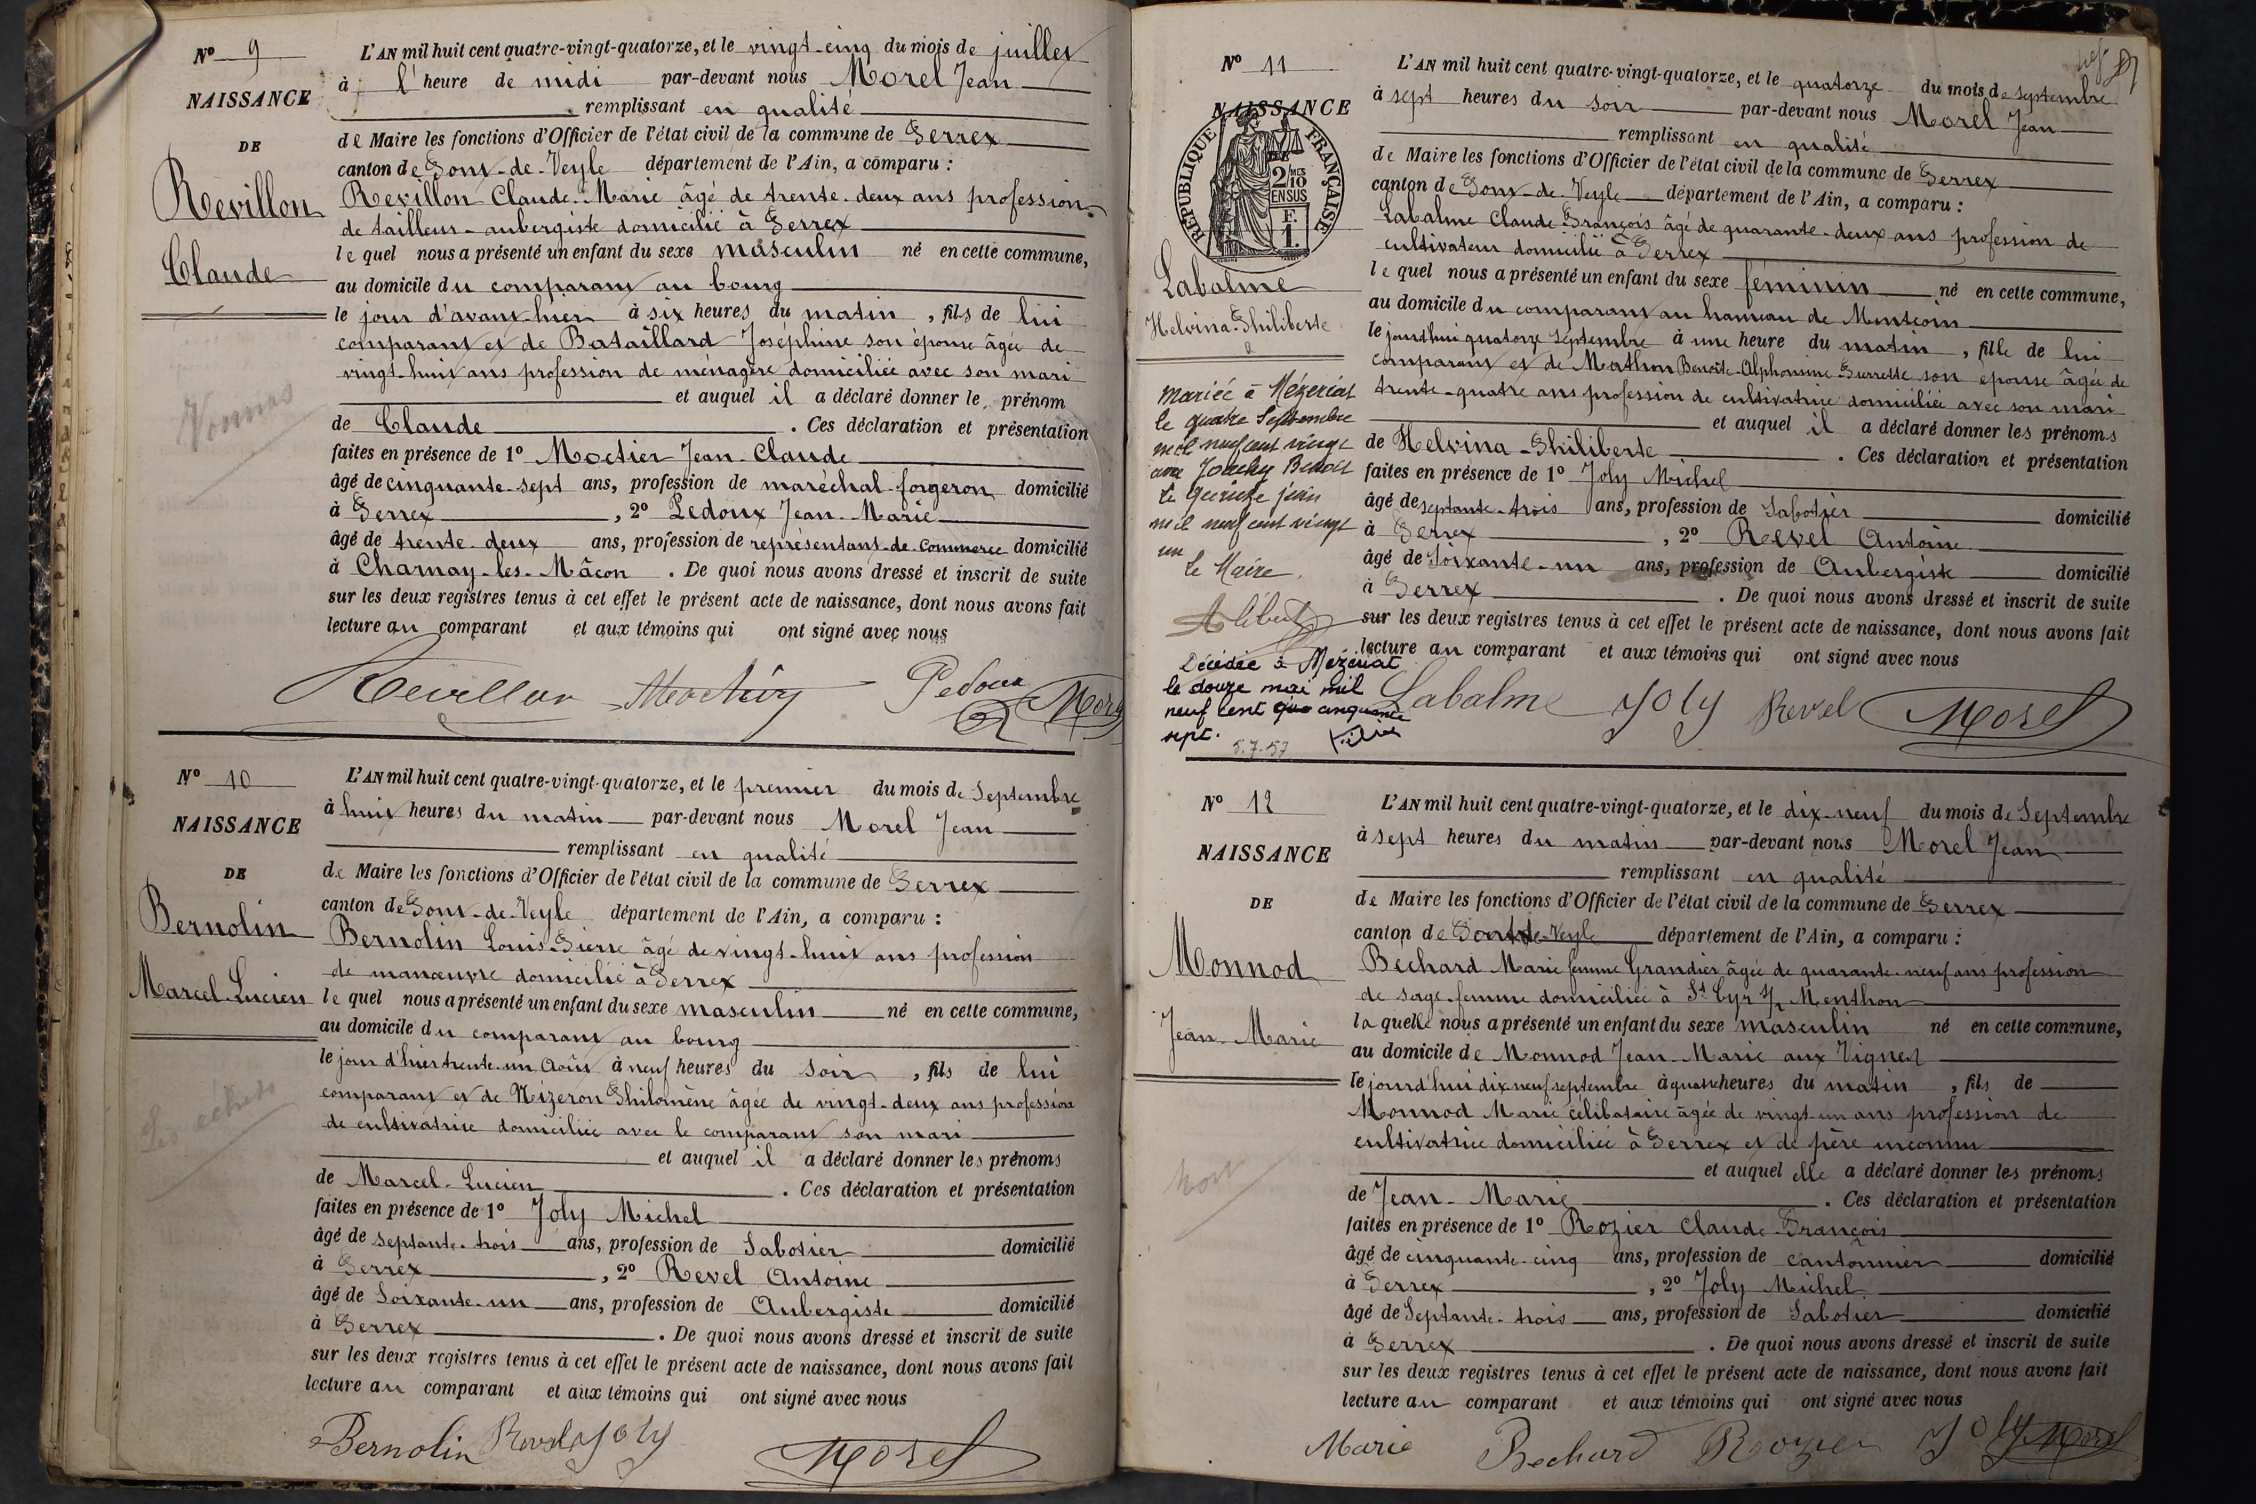 N° 9
NAISSANCE
DE
Revillon
Claude
Vonnas
L'AN mil huit cent quatre-vingt-quatorze, et le vingt-cinq du mois de juillet
à l'heure de midi par-devant nous Morel Jean
remplissant en qualité
de Maire les fonctions d'Officier de l'état civil de la commune de Perrex
canton de Pont-de-Veyle département de l'Ain, a comparu :
Revillon Claude-Marie âgé de trente-deux ans profession
de tailleur-aubergiste domicilié à Perrex
lequel nous a présenté un enfant du sexe masculin né en cette commune,
au domicile du comparant au bourg
le jour d'avant-hier à six heures du matin, fils de lui
comparant et de Bataillard Joséphine son épouse âgée de
vingt-huit ans profession de ménagère domiciliée avec son mari
et auquel il a déclaré donner le prénom
de Claude. Ces déclaration et présentation
faites en présence de 1° Moctier Jean-Claude
âgé de cinquante-sept ans, profession de maréchal-forgeron domicilié
à Perrex, 2° Pedoux Jean-Marie
âgé de trente-deux ans, profession de représentant-de-Commerce domicilié
à Charnay-les-Mâcon. De quoi nous avons dressé et inscrit de suite
sur les deux registres tenus à cet effet le présent acte de naissance, dont nous avons fait
lecture au comparant et aux témoins qui ont signé avec nous
Revillon Pedoux Morel
N° 10
NAISSANCE
DE
Bernolin
Marcel-Lucien
L'AN mil huit cent quatre-vingt-quatorze, et le premier du mois de Septembre
à huit heures du matin par-devant nous Morel Jean
remplissant en qualité
de Maire les fonctions d'Officier de l'état civil de la commune de Perrex
canton de Pont-de-Veyle département de l'Ain, a comparu :
Bernolin Louis-Pierre âgé de vingt-huit ans profession
de manœuvre domicilié à Perrex
lequel nous a présenté un enfant du sexe masculin né en cette commune,
au domicile du comparant au bourg
le jour d'hier trente-un Août à neuf heures du soir, fils de lui
comparant et de Nizeron Philomène âgée de vingt-deux ans profession
de cultivatrice domiciliée avec le comparant son mari
et auquel il a déclaré donner les prénoms
de Marcel-Lucien. Ces déclaration et présentation
faites en présence de 1° Joly Michel
âgé de septante-trois ans, profession de Sabotier domicilié
à Perrex, 2° Revel Antoine
âgé de Soixante-un ans, profession de Aubergiste domicilié
à Perrex. De quoi nous avons dressé et inscrit de suite
sur les deux registres tenus à cet effet le présent acte de naissance, dont nous avons fait
lecture au comparant et aux témoins qui ont signé avec nous
Bernolin Revel Joly
Morel
N° 11
NAISSANCE
DE
RÉPUBLIQUE FRANÇAISE
2/10 MES
EN SUS
F.
1.
Labalme
Helvina-Philiberte
Mariée à Mézériat
le quatre Septembre
mil neuf cent vingt
avec Benoit
Le quinze juin
mil neuf cent vingt
un
Le Maire
Décédée à Mézériat
le douze mai mil
neuf cent cinquante
sept.
5.7.57
L'AN mil huit cent quatre-vingt-quatorze, et le quatorze du mois de septembre
à sept heures du soir par-devant nous Morel Jean
remplissant en qualité
de Maire les fonctions d'Officier de l'état civil de la commune de Perrex
canton de Pont-de-Veyle département de l'Ain, a comparu :
Labalme Claude-François âgé de quarante-deux ans profession de
cultivateur domicilié à Perrex
lequel nous a présenté un enfant du sexe féminin né en cette commune,
au domicile du comparant au hameau de Montcoin
le jourd'hui quatorze septembre à une heure du matin, fille de lui
comparant et de Mathon Benoîte-Alphonsine Pierrette son épouse âgée de
trente-quatre ans profession de cultivatrice domiciliée avec son mari
et auquel il a déclaré donner les prénoms
de Helvina-Philiberte. Ces déclaration et présentation
faites en présence de 1° Joly Michel
âgé de septante-trois ans, profession de Sabotier domicilié
à Perrex, 2° Revel Antoine
âgé de Soixante-un ans, profession de Aubergiste domicilié
à Perrex. De quoi nous avons dressé et inscrit de suite
sur les deux registres tenus à cet effet le présent acte de naissance, dont nous avons fait
lecture au comparant et aux témoins qui ont signé avec nous
Labalme Joly Revel Morel
N° 12
NAISSANCE
DE
Monnod
Jean-Marie
Mort
L'AN mil huit cent quatre-vingt-quatorze, et le dix-neuf du mois de Septembre
à sept heures du matin par-devant nous Morel Jean
remplissant en qualité
de Maire les fonctions d'Officier de l'état civil de la commune de Perrex
canton de Pont-de-Veyle département de l'Ain, a comparu :
Bechard Marie femme Grandier âgée de quarante-neuf ans profession
de sage-femme domiciliée à St Cyr s/ Menthon
laquelle nous a présenté un enfant du sexe masculin né en cette commune,
au domicile de Monnod Jean-Marie aux Vignes
le jourd'hui dix neuf septembre à quatre heures du matin, fils de
Monnod Marie célibataire âgée de vingt-un ans profession de
cultivatrice domiciliée à Perrex et de père inconnu
et auquel elle a déclaré donner les prénoms
de Jean-Marie. Ces déclaration et présentation
faites en présence de 1° Rozier Claude-François
âgé de cinquante-cinq ans, profession de cantonnier domicilié
à Perrex, 2° Joly Michel
âgé de Septante-trois ans, profession de Sabotier domicilié
à Perrex. De quoi nous avons dressé et inscrit de suite
sur les deux registres tenus à cet effet le présent acte de naissance, dont nous avons fait
lecture au comparant et aux témoins qui ont signé avec nous
Marie Bechard Rozier Joly Morel